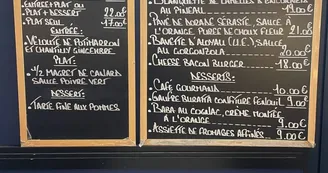 ENTRÉE + PLAT OU
PLAT + DESSERT 22.00
PLAT SEUL 17.00€
ENTRÉE:
. VELOUTÉ DE POTIMARRON
ET CHANTILLY GINGEMBRE
PLAT:
. 1/2 MAGRET DE CANARD
SAUCE POIVRE VERT
DESSERT:
. TARTE FINE AUX POMMES
BLANQUETTE DE
AU PINEAU 19.00€
. PAVÉ DE DORADE SÉBASTE, SAUCE À
L'ORANGE PURÉE DE CHOUX FLEUR 21.00€
. BAVETTE D'ALOYAU (U.E), SAUCE
AU GORGONZOLA 20.00€
. CHEESE BACON BURGER 18.00€
DESSERTS:
. CAFÉ GOURMAND 10.00€
. GAUFRE BURRATA CONFITURE FENOUIL 9.00€
. BABA AU COGNAC, CRÈME MONTÉE
À L'ORANGE 9.00€
. ASSIETTE DE FROMAGES AFFINÉS 9.00€